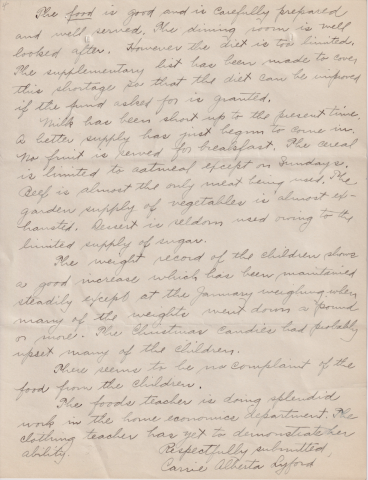 The food is good and is carefully prepared
and well served. The dining room is well
looked after. However the diet is too limited.
The supplementary list has been made to cover
this shortage so that the diet can be improved
if the fund asked for is granted.
Milk has been short up to the present time.
A better supply has just begun to come in.
No fruit is served for breakfast. The cereal
is limited to oatmeal except on Sundays.
Beef is almost the only meat being used. The
garden supply of vegetables is almost ex-
hausted. Dessert is seldom used owing to the
limited supply of sugar.
The weight record of the children shows
a good increase which has been maintained
steadily except at the January weighing, when
many of the weights went down a pound
or more. The Christmas candies had probably
upset many of the children.
There seems to be no complaint of the
food from the children.
The foods teacher is doing splendid
work in the home economics department. The
clothing teacher has yet to demonstrate her
ability.
Respectfully submitted,
Carrie Alberta Lyford